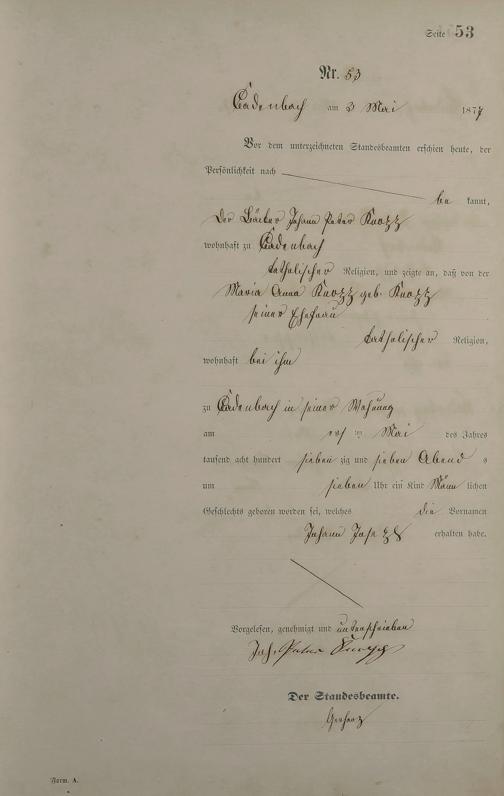 Seite 53
Nr. 53
Cadenbach am 3 Mai 1877
Vor dem unterzeichneten Standesbeamten erschien heute, der
Persönlichkeit nach
be kannt,
der Bäcker Johann Peter Knopp
wohnhaft zu Cadenbach
katholischer Religion, und zeigte an, daß von der
Maria Anna Knopp geb. Knopp
seiner Ehefrau
katholischer Religion,
wohnhaft bei ihm
zu Cadenbach in seiner Wohnung
am Mai des Jahres
tausend acht hundert sieben zig und sieben Abend s
um sieben Uhr ein Kind Männ lichen
Geschlechts geboren worden sei, welches die Vornamen
Johann erhalten habe.
Vorgelesen, genehmigt und unterschrieben
Joh. Peter Knopp
Der Standesbeamte.
Form. A.